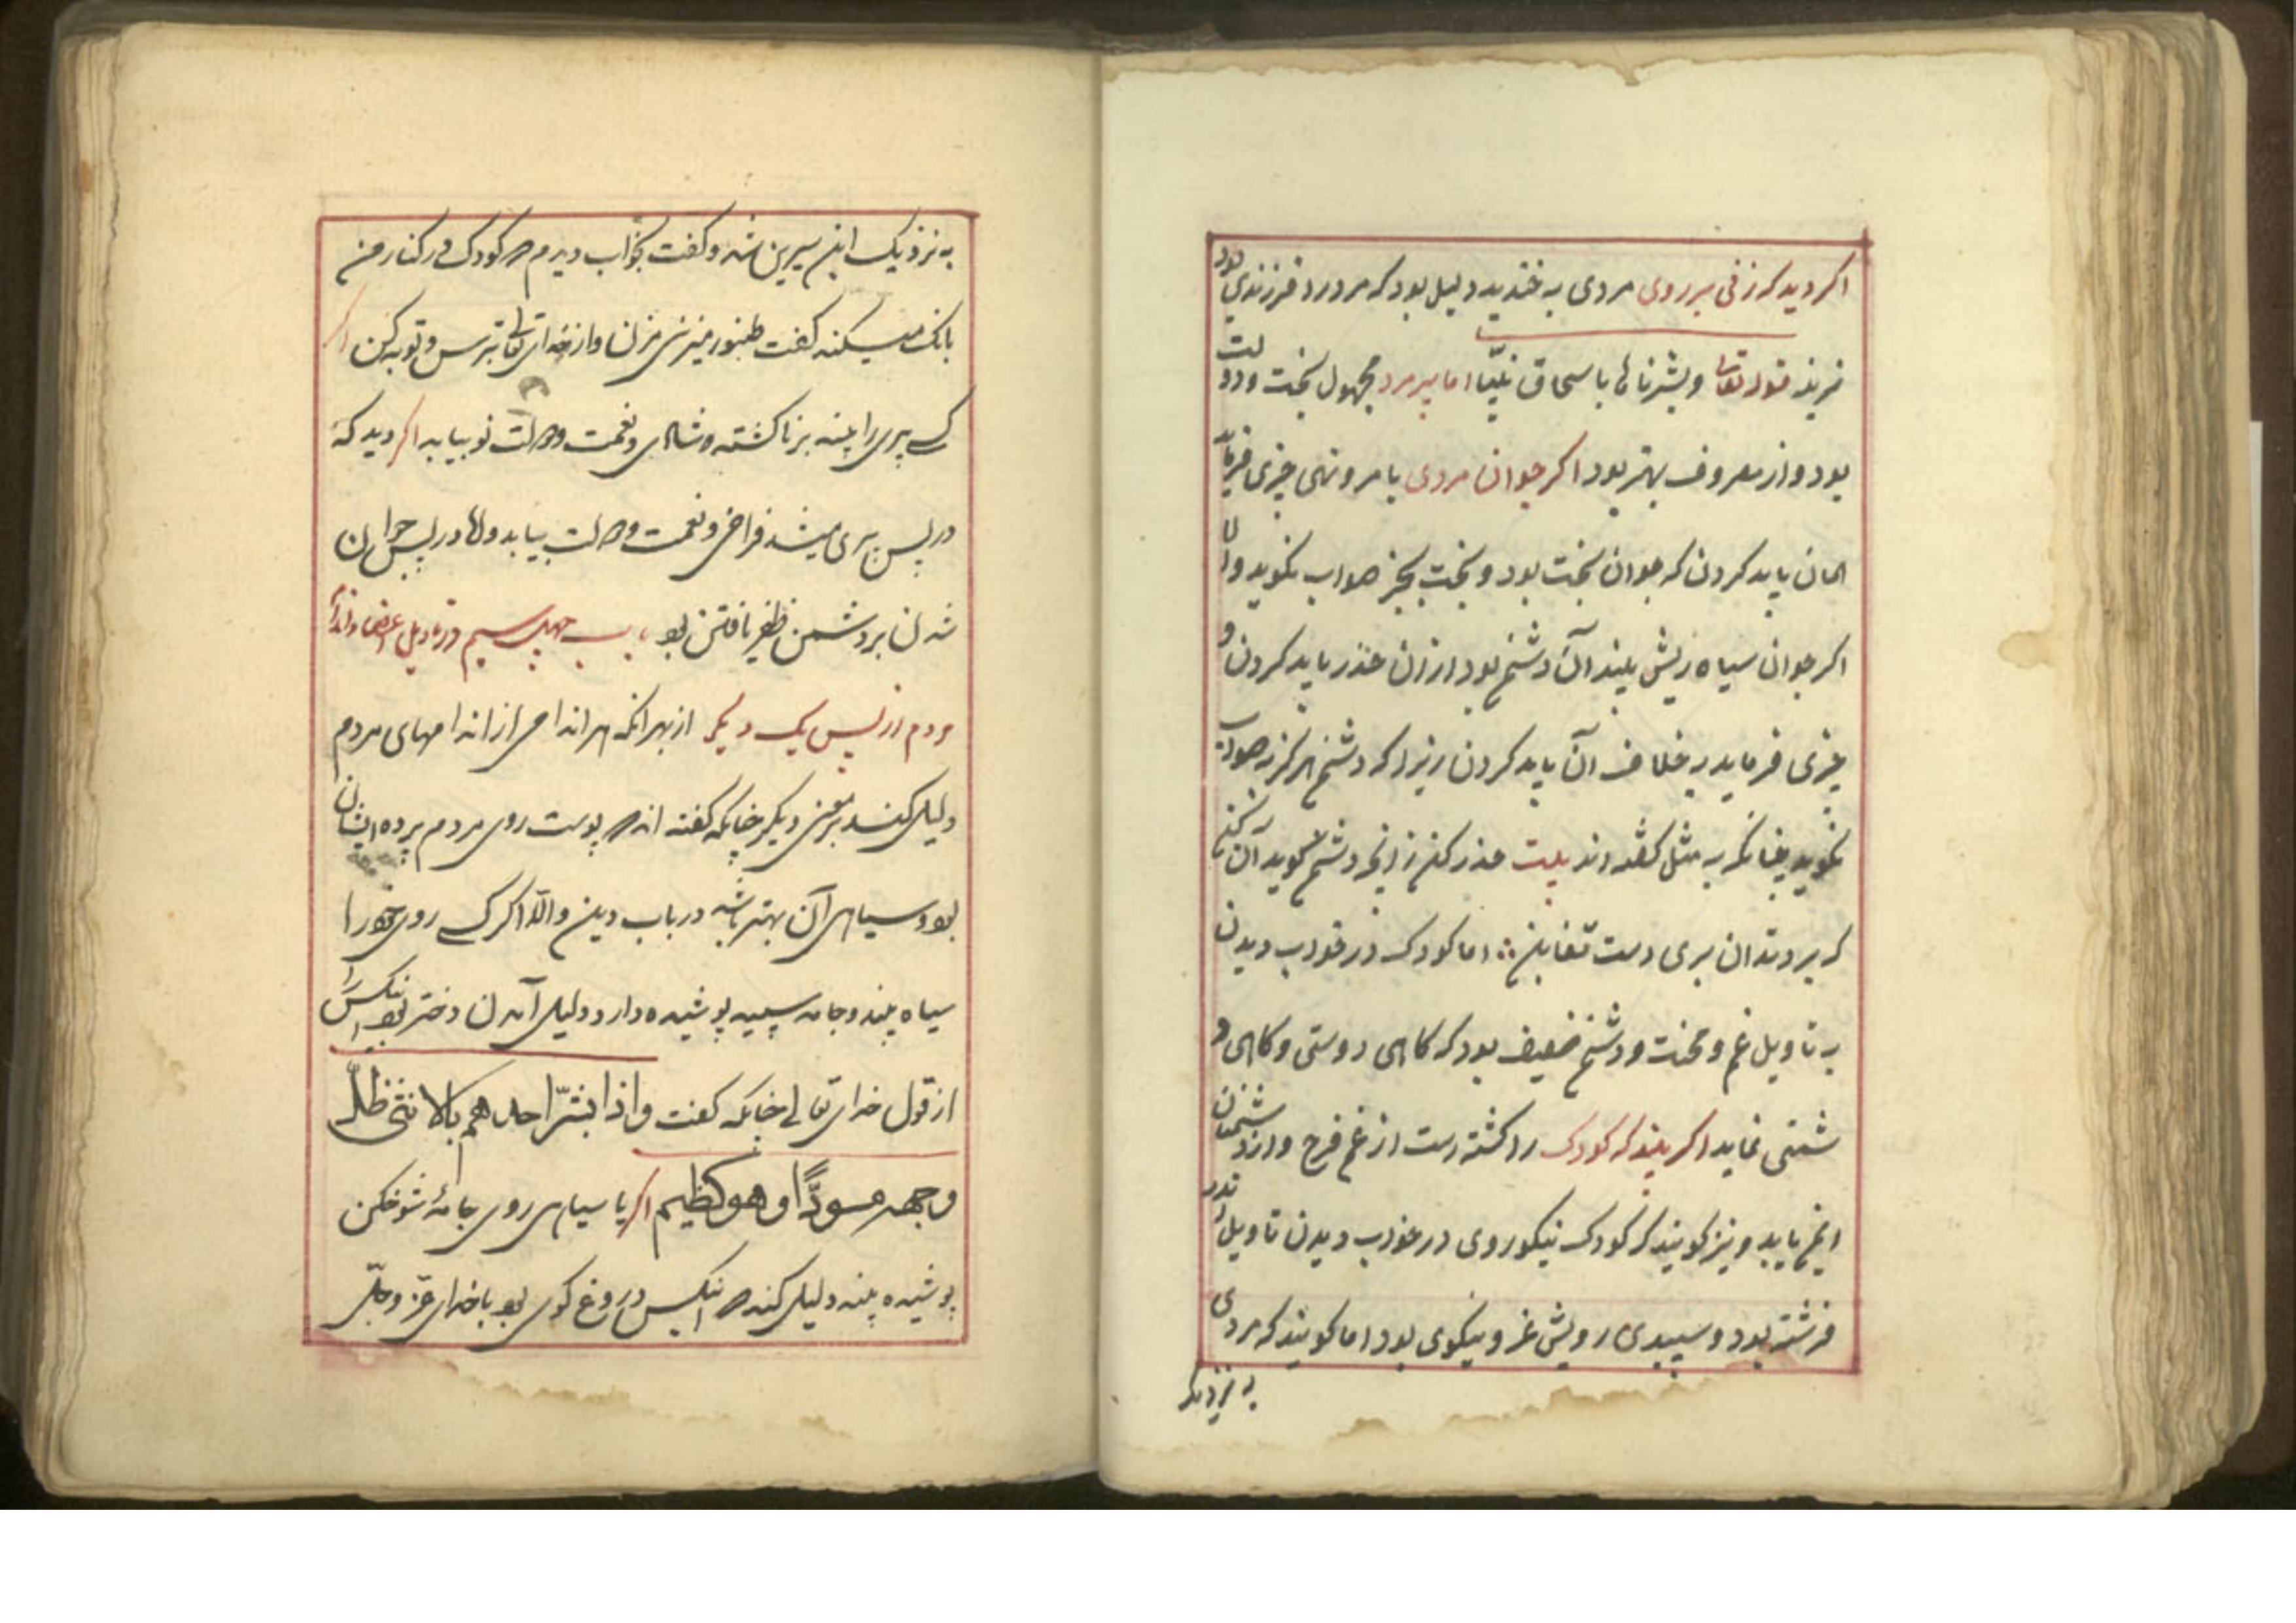 اکر دید که زنی بر روی مردی به خندید دلیل بود که مرورا فرزندی بود
نرینه قوله تعالی وبشرناها باسحاق نبیّا اما پیر مرد مجهول بخت ودولت
بود واز معروف بهتر بود اکر جوان مردی بامر ونهی چیزی فرماید
همان باید کردن که جوان بخت بود وبخت بجز صواب نکوید واما
اکر جوان سیاه ریش بیند آن دشمن بود از ان حذر باید کردن و
چیزی فرماید به خلاف آن باید کردن زیرا که دشمن هرکز به صواب
نکوید چنانکه به مثل کفته اند بیت حذر کن ز انچه دشمن کوید آن کن
که بر دندان بری دست تغابن اما کودک در خواب دیدن
به تاویل غم ومحنت ودشمن ضعیف بود که کاهی دوستی وکاهی د
شمنی نماید اکر بیند که کودک را کشته است از غم فرح واز دشمنان
ایمن یابد ونیز کویند که کودک نیکوروی در خواب دیدن تاویل
فرشته بود وسپیدی رویش عز ونیکوی بود اما کویند که مردی
به نزدیک
به نزدیک ابن سیرین شد وکفت بخواب دیدم که کودک در کنار من
بانک میکند کفت طنبور میزنی مزن واز خدای تعالی بترس وتوبه کن اکر
کسی پیری را بیند برنا کشته شاهی ونعمت ودولت نو بیابد اکر دید که
در پس پیری میشد فراخی ونعمت ودولت بیابد واما در پس جوان
شدن بر دشمن ظفر یافتن بود باب چهل سیم در تاویل اعضا واندام
مردم از پس یک دیکر از بهر انکه هر اندامی از اندامهای مردم
دلیل کند بر معنی دیکر چنانکه کفته اند که پوست روی مردم پرده ایشان
بود وسیاهی آن بهتر باشد در باب دین والّا اکر کسی روی خود را
سیاه بیند وجامه سپید پوشیده دارد دلیل آمدن دختر بود انکس را
از قول خدای تعالی چنانکه کفت واذا بشّر احدهم بالانثی ظلّ
وجهه مسودّا وهو کظیم اکر با سیاهی روی جامهٔ شوخکن
پوشیده بیند دلیل کند که انکس دروغ کوی بود با خدای عزّ وجلّ